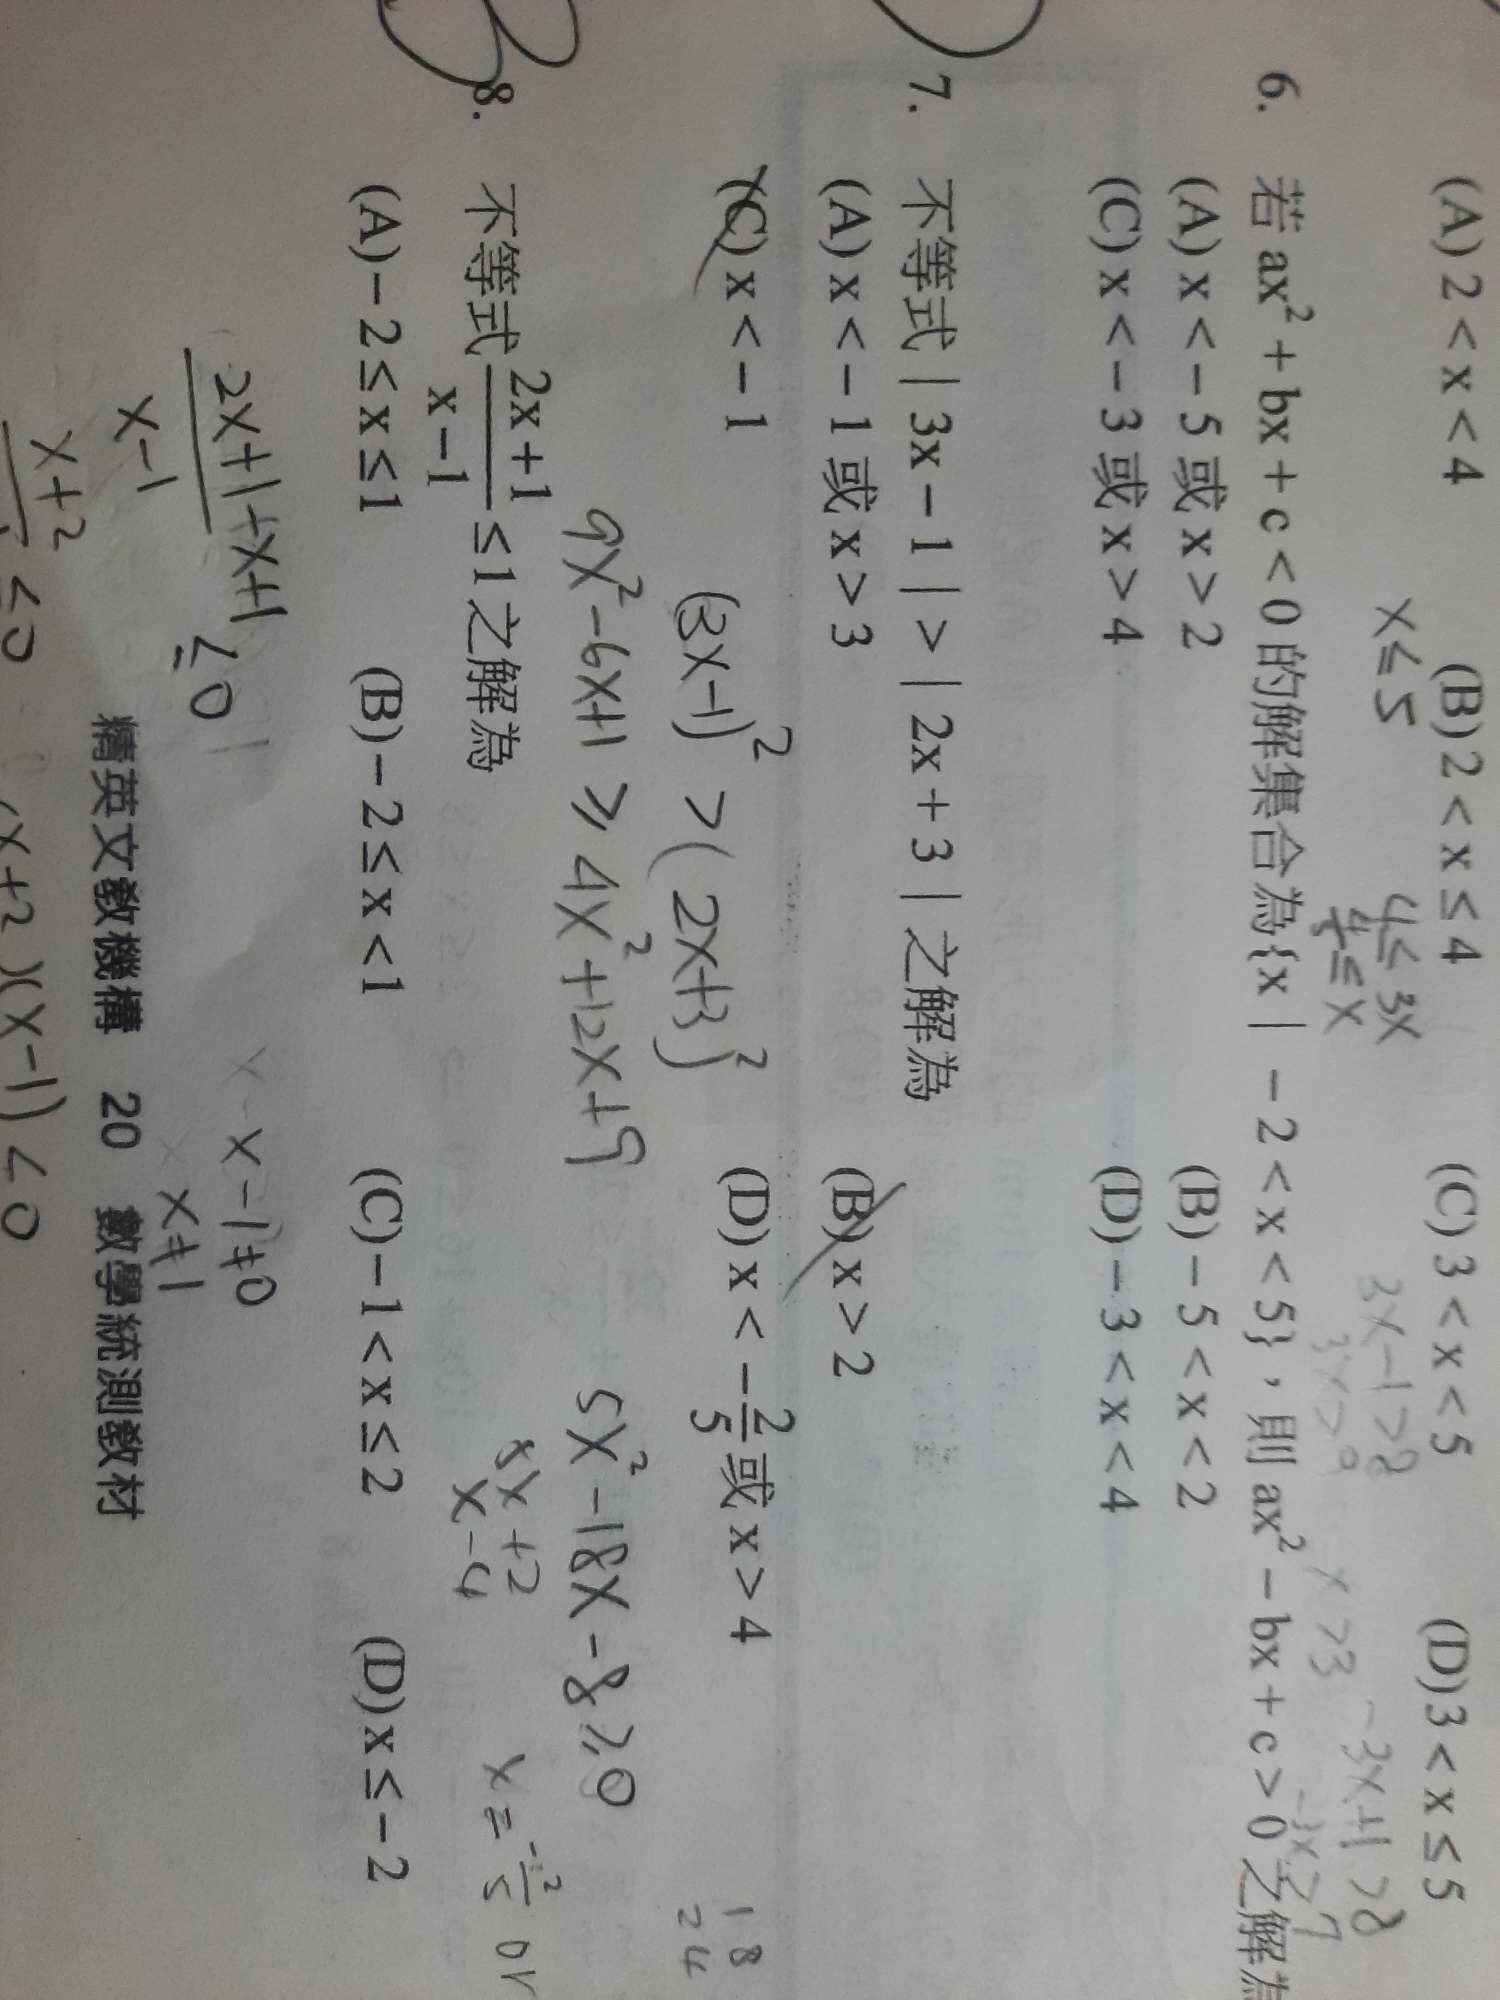 (A) 2 < x < 4 (B) 2 < x ≤ 4 (C) 3 < x < 5 (D) 3 < x ≤ 5
x ≤ 5
4 ≤ 3x
≤ x
3x-1>8
3x>9
x>3
-3x+1>8
-3x>7
6. 若 ax² + bx + c < 0 的解集合為{x | -2 < x < 5}，則 ax² - bx + c > 0 之解為
(A) x < -5 或 x > 2 (B) -5 < x < 2
(C) x < -3 或 x > 4 (D) -3 < x < 4
7. 不等式 | 3x - 1 | > | 2x + 3 | 之解為
(A) x < -1 或 x > 3 (B) x > 2
(C) x < -1 (D) x < -2/5 或 x > 4
(3x-1)² > (2x+3)²
18
24
9x²-6x+1 ≥ 4x²+12x+9 5x²-18x-8≥0
5x+2
x-4
x = -2/5 or
8. 不等式 (2x+1)/(x-1) ≤ 1 之解為
(A) -2 ≤ x ≤ 1 (B) -2 ≤ x < 1 (C) -1 < x ≤ 2 (D) x ≤ -2
(2x+1+x+1)/(x-1) ≤ 0
x-1≠0
x≠1
x+2 ≤0
(x+2)(x-1)≤0
精英文教機構 20 數學統測教材